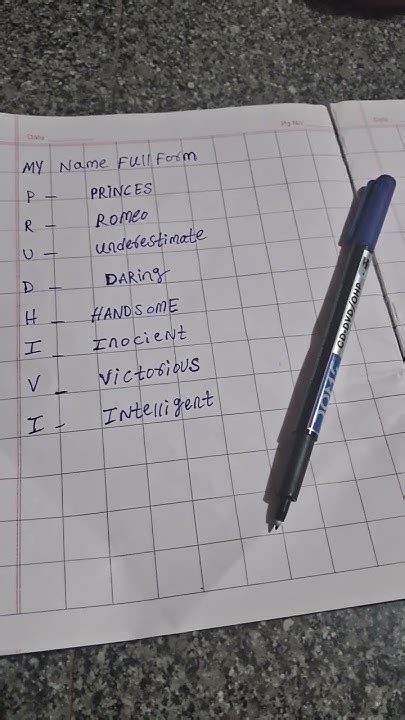 Date
Pg No:
MY Name Full Form
P - PRINCES
R - Romeo
U - underestimate
D - DARing
H - HANDSOME
I - Inocient
V - Victorious
I - INtelligent
CD-DVD/OHP